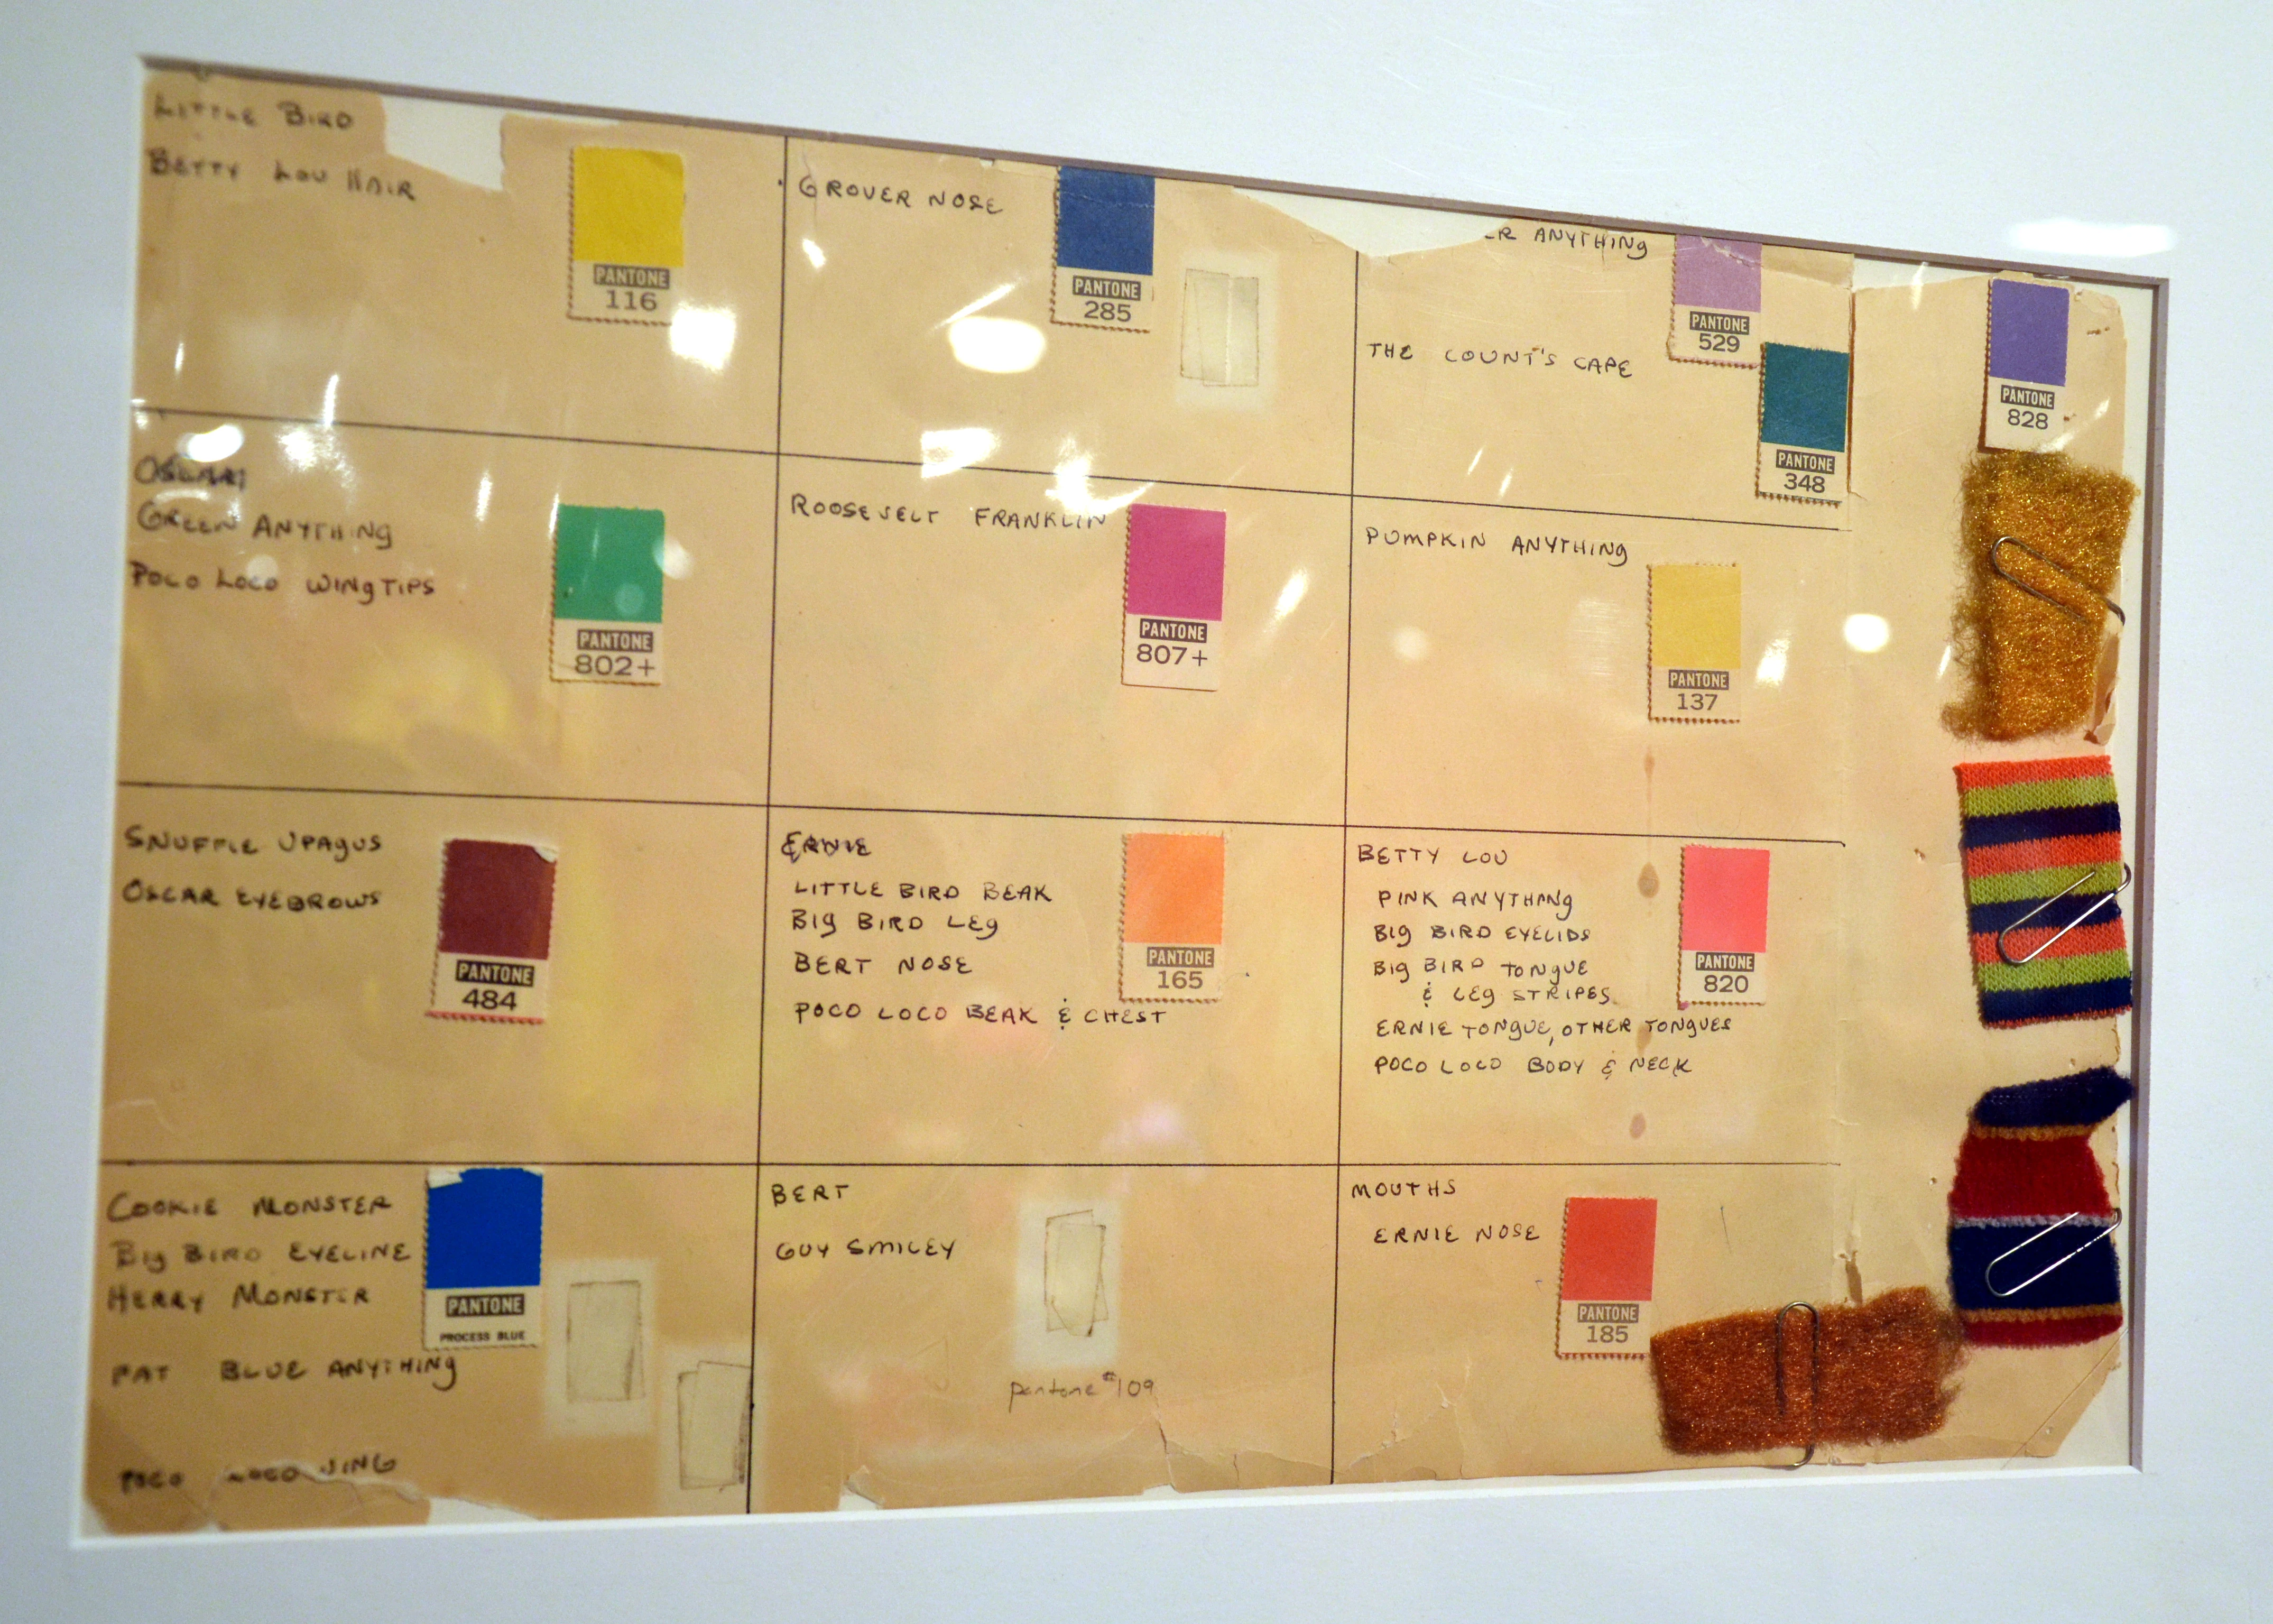 LITTLE BIRD
BETTY LOU HAIR
PANTONE
116
GROVER NOSE
PANTONE
285
ER ANYTHINg
PANTONE
529
THE COUNT'S CAPE
PANTONE
348
PANTONE
828
OSCAR
GREEN ANYTHINg
POCO LOCO WINgTIPS
PANTONE
802+
ROOSEVELT FRANKLIN
PANTONE
807+
PUMPKIN ANYTHINg
PANTONE
137
SNUFFLE UPAgUS
OSCAR EYEBROWS
PANTONE
484
ERNIE
LITTLE BIRD BEAK
BIg BIRD LEg
BERT NOSE
POCO LOCO BEAK & CHEST
PANTONE
165
BETTY LOU
PINK ANYTHINg
BIg BIRD EYELIDS
BIg BIRD TONgUE
& LEg STRIPES
ERNIE TONgUE, OTHER TONgUES
POCO LOCO BODY & NECK
PANTONE
820
COOKIE MONSTER
BIg BIRD EYELINE
HERRY MONSTER
FAT BLUE ANYTHINg
POCO LOCO WING
PANTONE
PROCESS BLUE
BERT
GUY SMILEY
pantone #109
MOUTHS
ERNIE NOSE
PANTONE
185